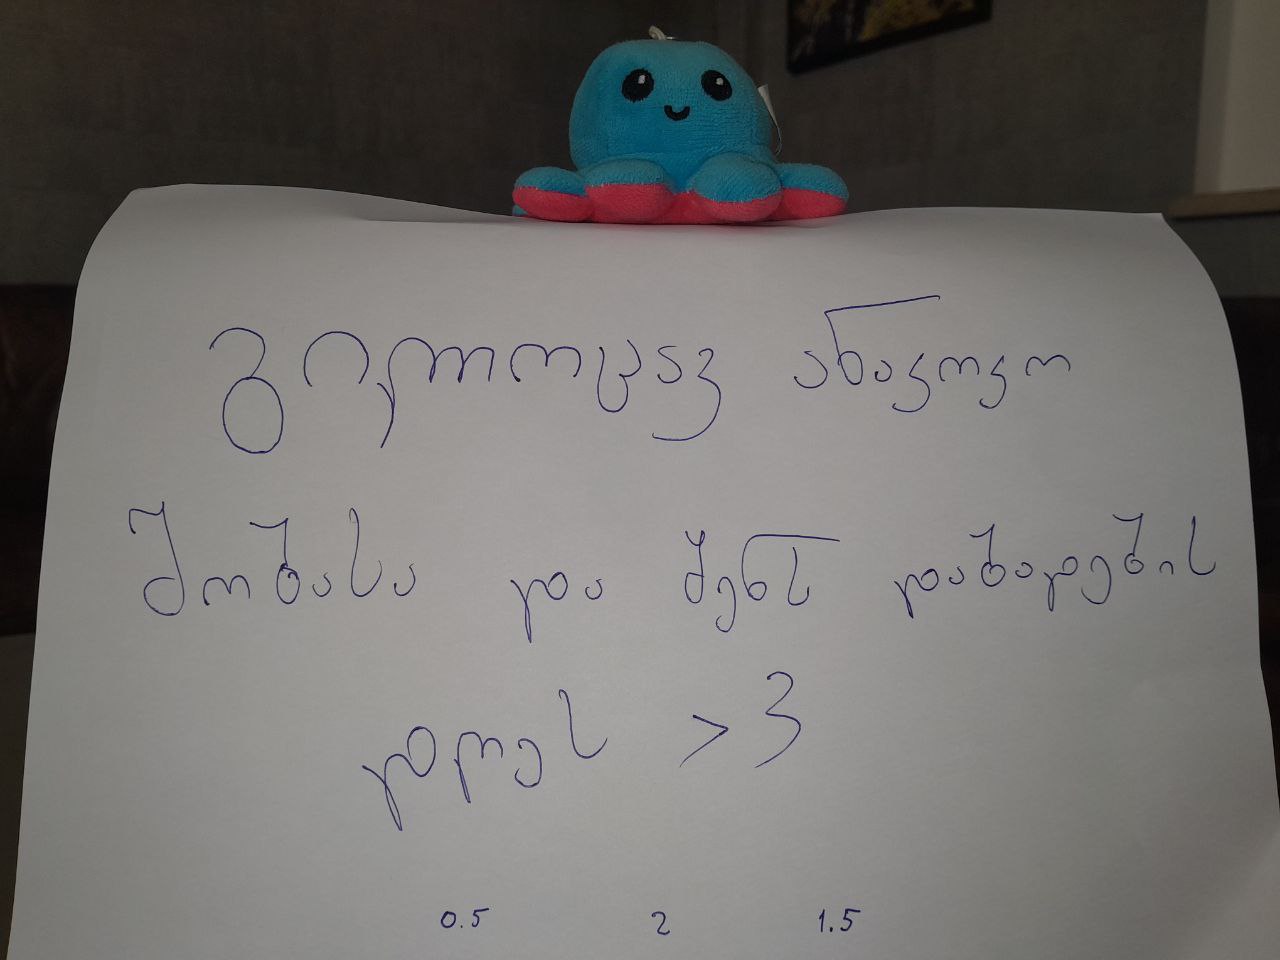 გილოცავ ანაკოკო
შობასა და შენს დაბადების
დღეს >3
0.5 2 1.5